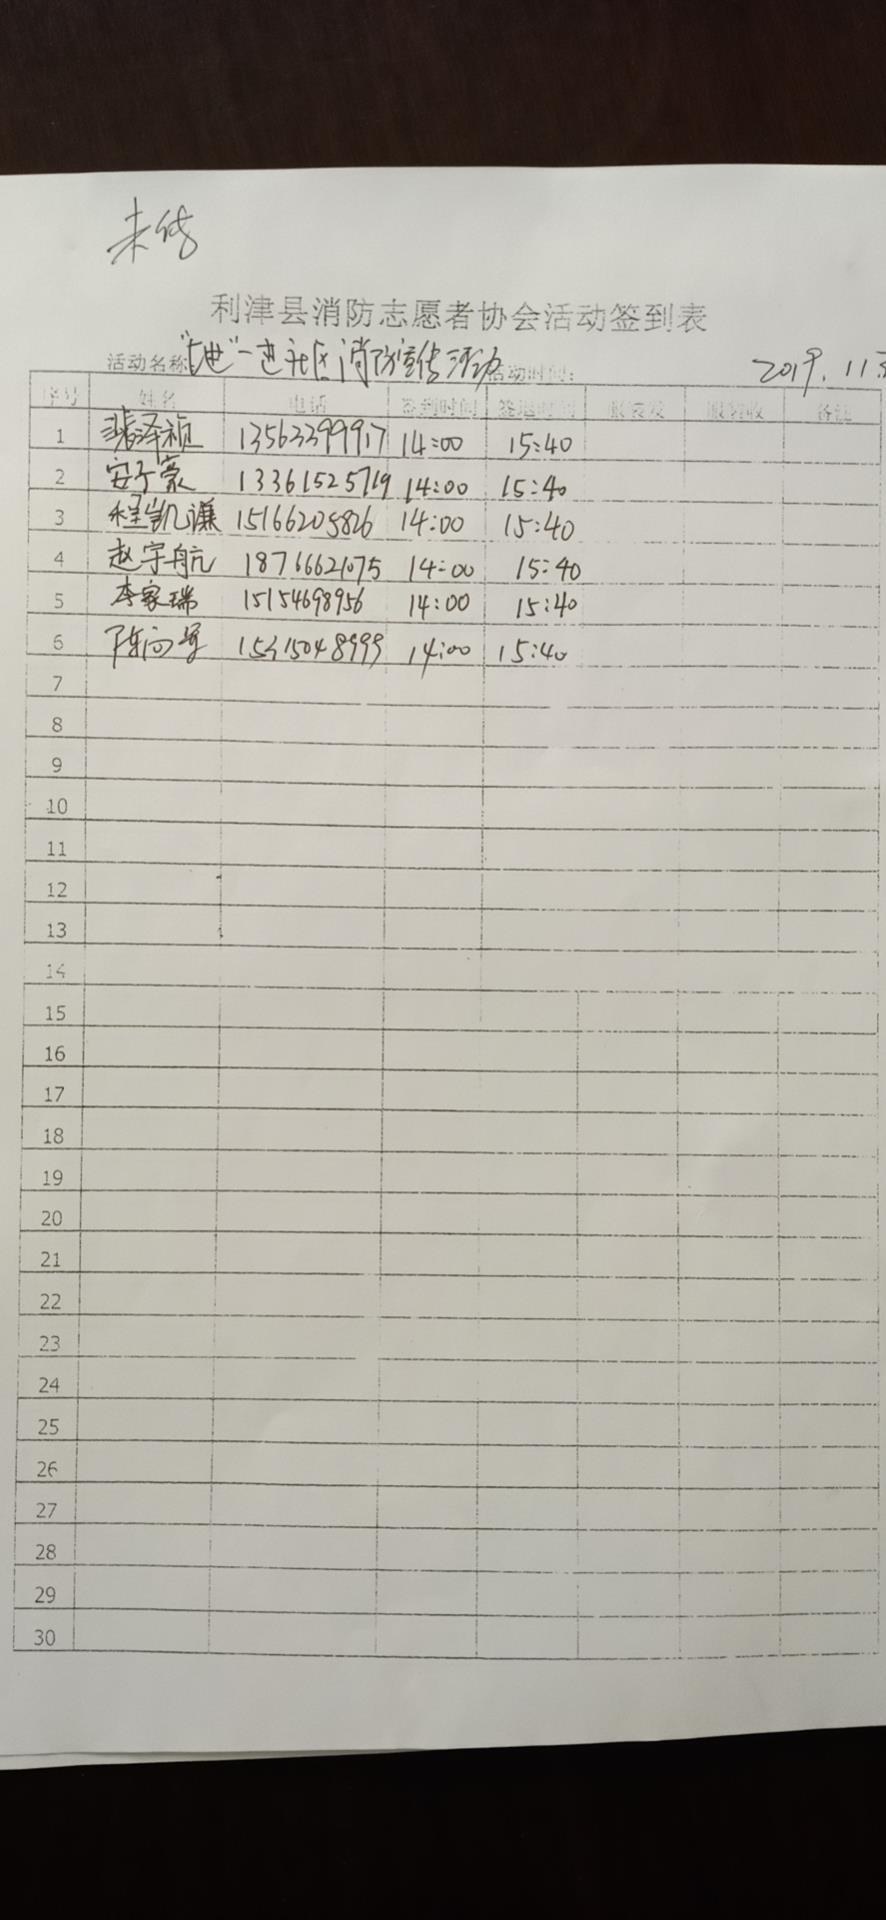 未传
利津县消防志愿者协会活动签到表
活动名称: "七进"一进社区消防宣传活动 活动时间: 2019.11
序号 姓名 电话 签到时间 签退时间 服装发 服装收 备注
1 裴泽祯 13563399917 14:00 15:40
2 安子豪 13361525719 14:00 15:40
3 程凯谦 15166205826 14:00 15:40
4 赵宇航 18766621075 14:00 15:40
5 李家瑞 15154698956 14:00 15:40
6 陈向 14:00 15:40
7
8
9
10
11
12
13
14
15
16
17
18
19
20
21
22
23
24
25
26
27
28
29
30